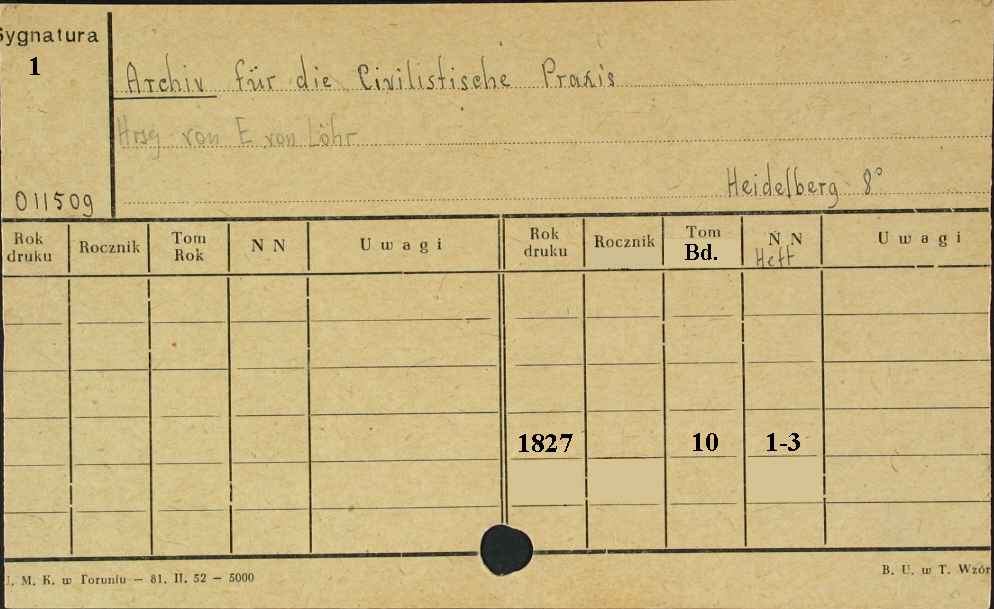 Sygnatura
1
Archiv für die Civilistische Praxis
Hrsg von E von Löhr
Heidelberg 8°
011509
Rok druku Rocznik Tom Rok N N Uwagi Rok druku Rocznik Tom Bd. N N Heft Uwagi
1827 10 1-3
U. M. K. w Toruniu — 81. II. 52 — 5000
B. U. w T. Wzór